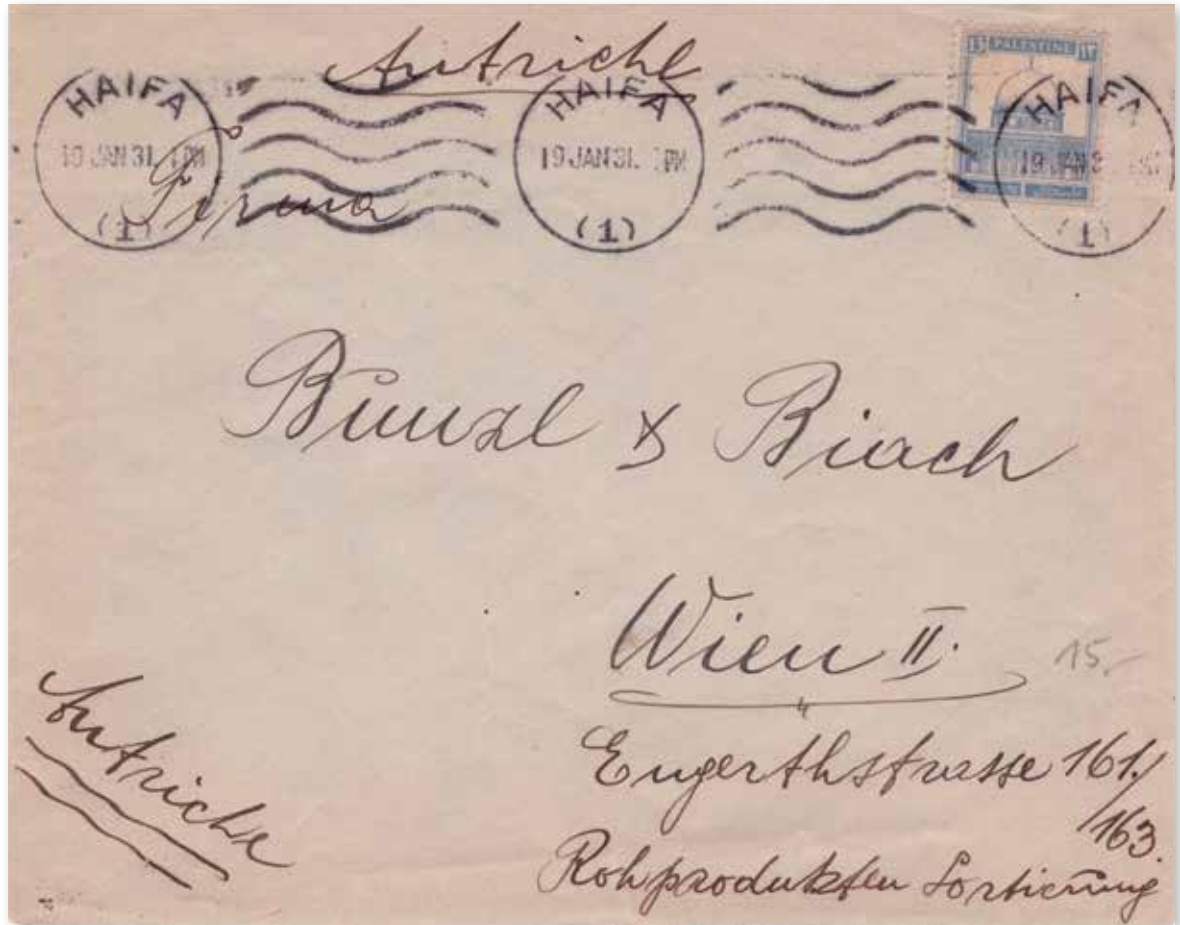 Autriche
PALESTINE
HAIFA
19 JAN 31. PM
(1)
HAIFA
19 JAN 31. PM
(1)
HAIFA
19 JAN 3
(1)
Firma
Bunzl & Biach
Wien II.
15.-
Engerthstrasse 161./
163.
Rohprodukten Sortierung
Autriche